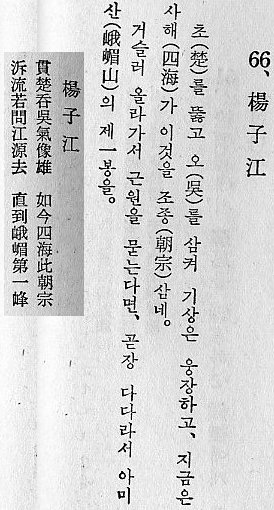 66、楊子江
초(楚)를 뚫고 오(吳)를 삼켜 기상은 웅장하고、지금은
사해(四海)가 이것을 조종(朝宗) 삼네。
거슬러 올라가서 근원을 묻는다면、곧장 다다라서 아미
산(峨嵋山)의 제一봉을。
楊子江
貫楚吞吳氣像雄 如今四海此朝宗
泝流若問江源去 直到峨嵋第一峰